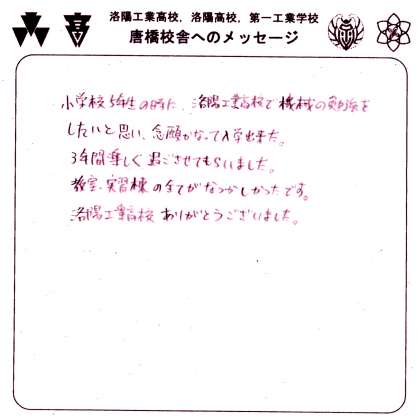 洛陽工業高校，洛陽高校，第一工業学校
唐橋校舎へのメッセージ
小学校5年生の時に、洛陽工業高校で機械の勉強を
したいと思い、念願かなって入学出来た。
3年間楽しく過ごさせてもらいました。
教室、実習棟の全てがなつかしかったです。
洛陽工業高校 ありがとうございました。